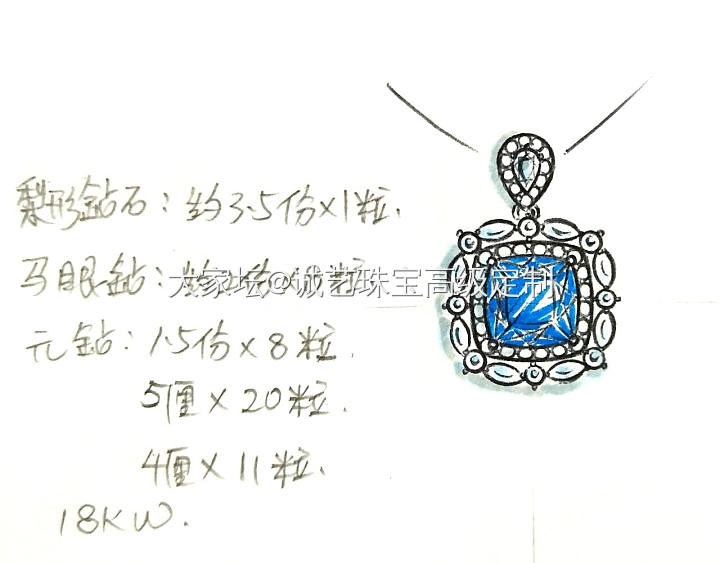 梨形钻石：约3.5份×1粒.
马眼钻：
大家坛@诚艺珠宝高级定制
元钻：1.5份×8粒.
5厘×20粒.
4厘×11粒.
18KW.